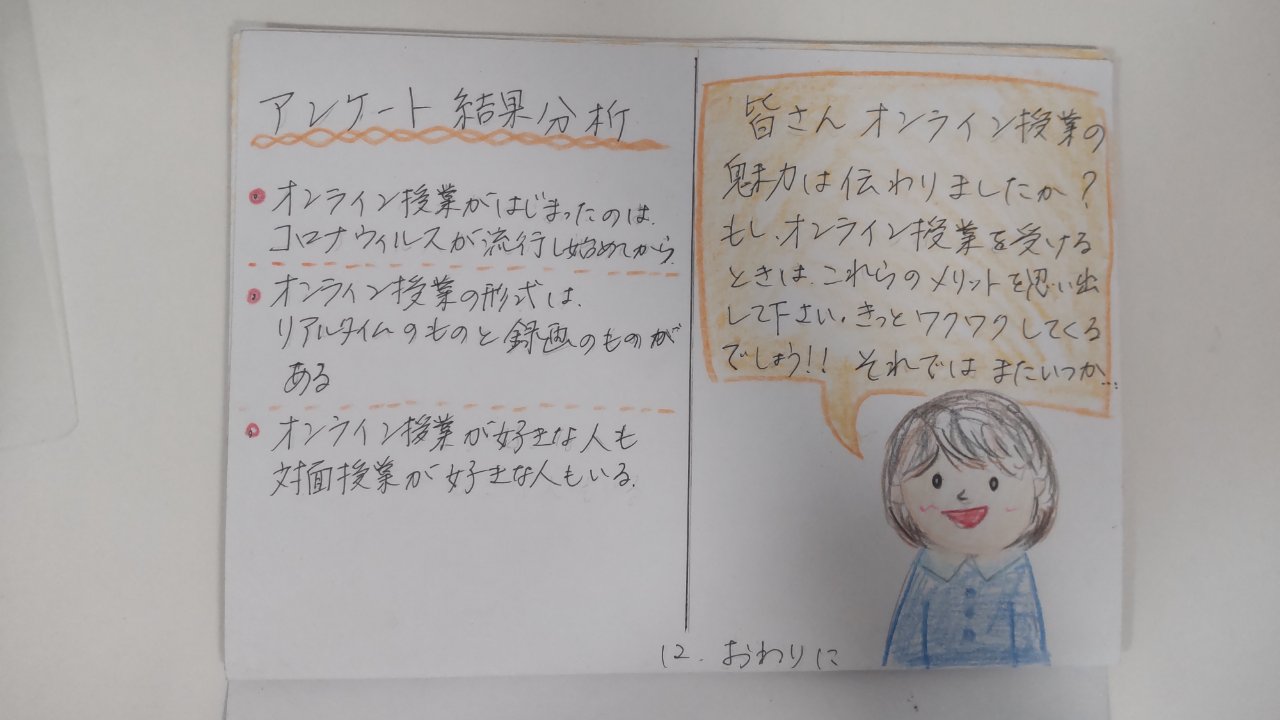 アンケート結果分析
オンライン授業がはじまったのは、
コロナウィルスが流行し始めてから
オンライン授業の形式は、
リアルタイムのものと録画のものが
ある
オンライン授業が好きな人も
対面授業が好きな人もいる。
皆さんオンライン授業の
魅力は伝わりましたか？
もし、オンライン授業を受ける
ときは、これらのメリットを思い出
して下さい。きっとワクワクしてくる
でしょう!! それではまたいつか...
12. おわりに